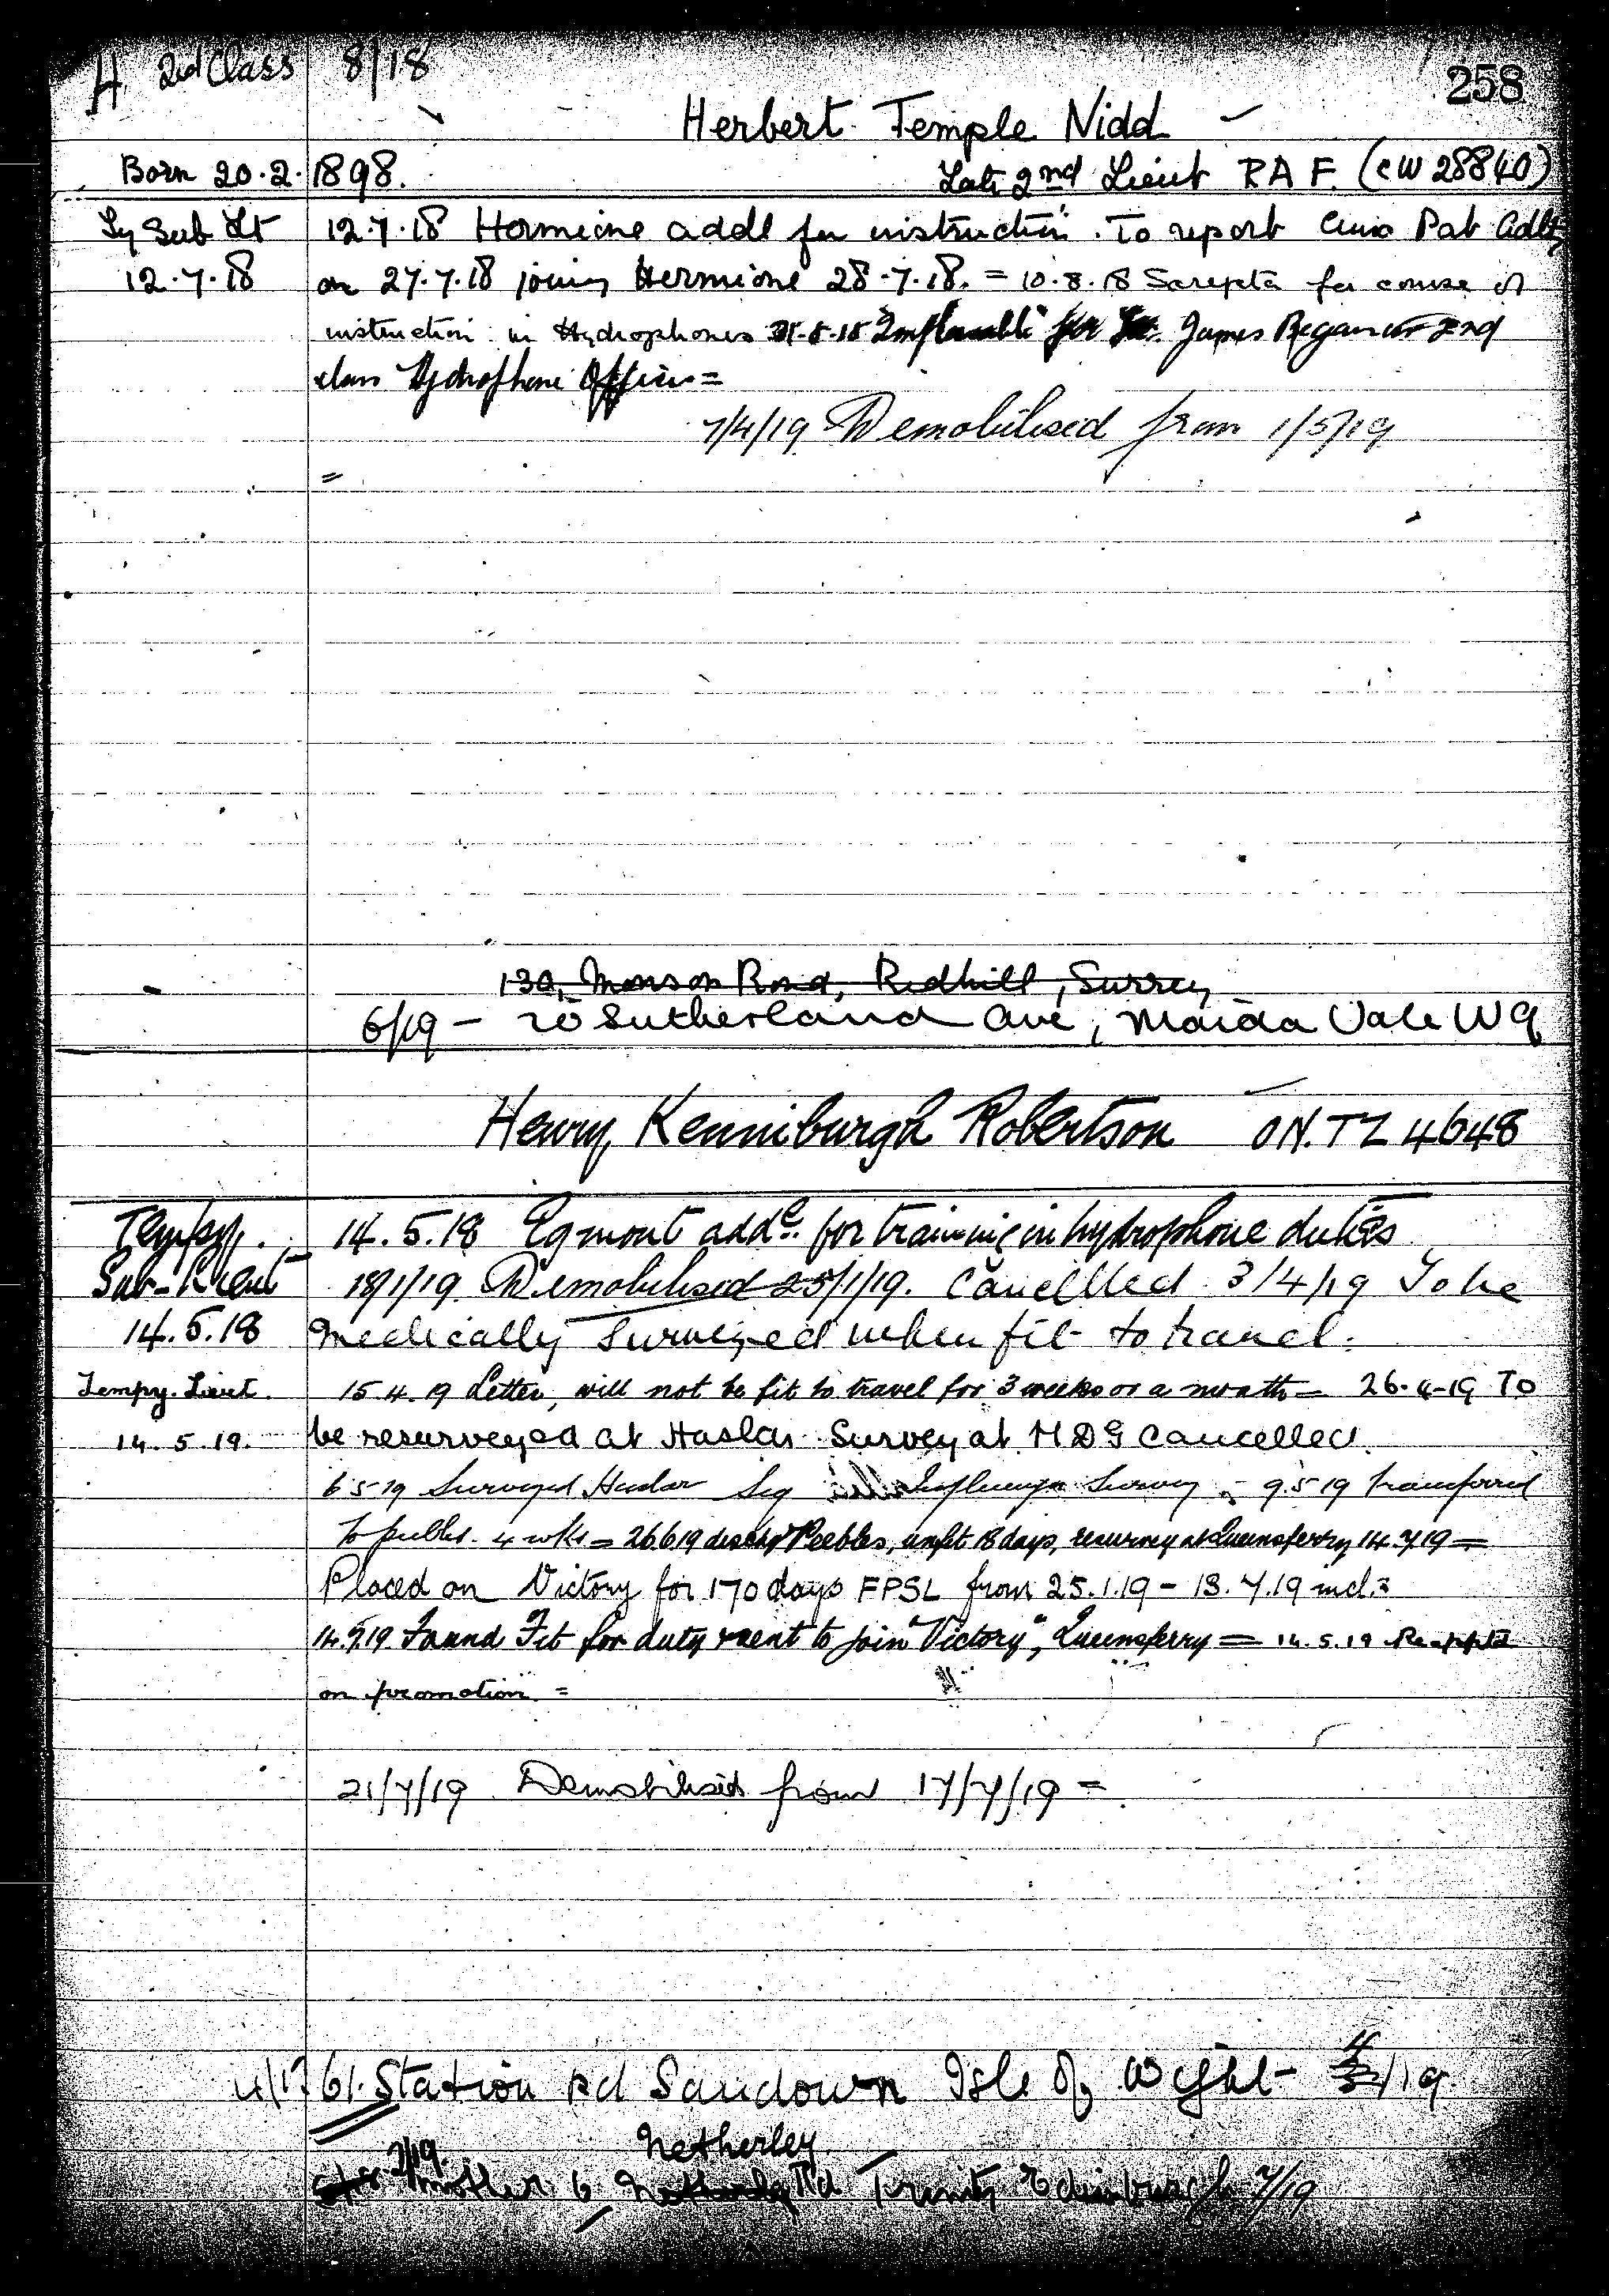 H 2nd Class 8/18
258
Herbert Temple Nidd
Born 20.2.1898. Late 2nd Lieut R A F. (CW 28840)
Ty Sub Lt 12.7.18 Hermione addl for instruction. To report
12.7.18 on 27.7.18 joining Hermione 28.7.18. = 10.8.18 Sarepta for course of
instruction in Hydrophones 31.8.18 James 2nd
class Hydrophone Officer =
7/4/19 Demobilised from 1/5/19
=
13a, Monson Road, Redhill, Surrey
6/19 - 20 Sutherland Ave, Maida Vale W9
Henry Kenniburgh Robertson O.N. TZ 4648
Tempy. 14.5.18 Egmont addl. for training in hydrophone duties
Sub-Lieut 18/1/19 Demobilised 25/1/19. Cancelled 3/4/19 To be
14.5.18 medically surveyed when fit to travel.
Tempy. Lieut. 15.4.19 Letter, will not be fit to travel for 3 weeks or a month = 26.4.19 To
14.5.19. be resurveyed at Haslar. Survey at M D G cancelled.
6 5 19 Surveyed Haslar Influenza Survey = 9.5 19 transferred
to Peebles. 4 wks = 26.6.19 disch'd Peebles, unfit 18 days, resurvey at Queensferry 14.7.19 =
Placed on Victory for 170 days FPSL from 25.1.19 - 13.7.19 incl. =
14.7.19. Found Fit for duty & sent to join "Victory", Queensferry = 14.5.19 Reapptd
on promotion =
21/7/19 Demobilised from 17/7/19 =
61. Station Rd Sandown Isle of Wight 4/19
Netherley
7/19. mother 6 Rd Trinity Edinburgh 7/19